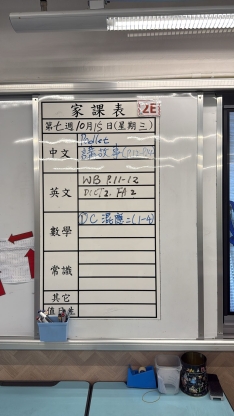 家課表 2E
第七週10月15日(星期三)
中文 Padlet
講故事
英文 WB P.11-12
DICT2. FA2
數學 DC 混應二(1-4)
常識
其它
值日生